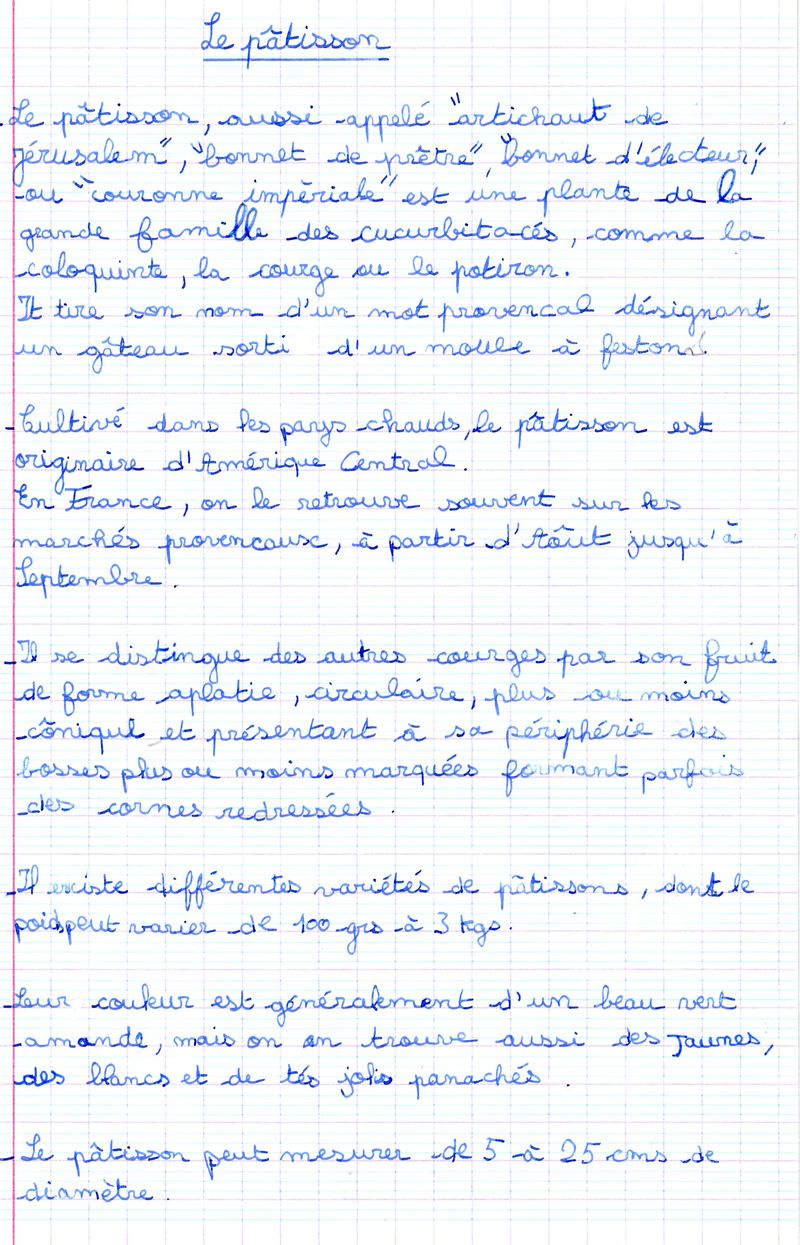 Le pâtisson
- Le pâtisson, aussi appelé "artichaut de
Jérusalem", "bonnet de prêtre", "bonnet d'électeur,"
ou "couronne impèriale" est une plante de la
grande famille des cucurbitacés, comme la
coloquinte, la courge ou le potiron.
Il tire son nom d'un mot provencal désignant
un gâteau sorti d'un moule à feston.
- Cultivé dans les pays chauds, le pâtisson est
originaire d'Amérique Central.
En France, on le retrouve souvent sur les
marchés provencaux, à partir d'Aôut jusqu'à
Septembre.
- Il se distingue des autres courges par son fruit
de forme aplatie, circulaire, plus ou moins
cônique et présentant à sa périphérie des
bosses plus ou moins marquées formant parfois
des cornes redressées.
- Il existe différentes variétés de pâtissons, dont le
poids peut varier de 100 grs à 3 kgs.
- Leur couleur est généralement d'un beau vert
amande, mais on en trouve aussi des jaunes,
des blancs et de tés jolis panachés.
- Le pâtisson peut mesurer de 5 à 25 cms de
diamètre.